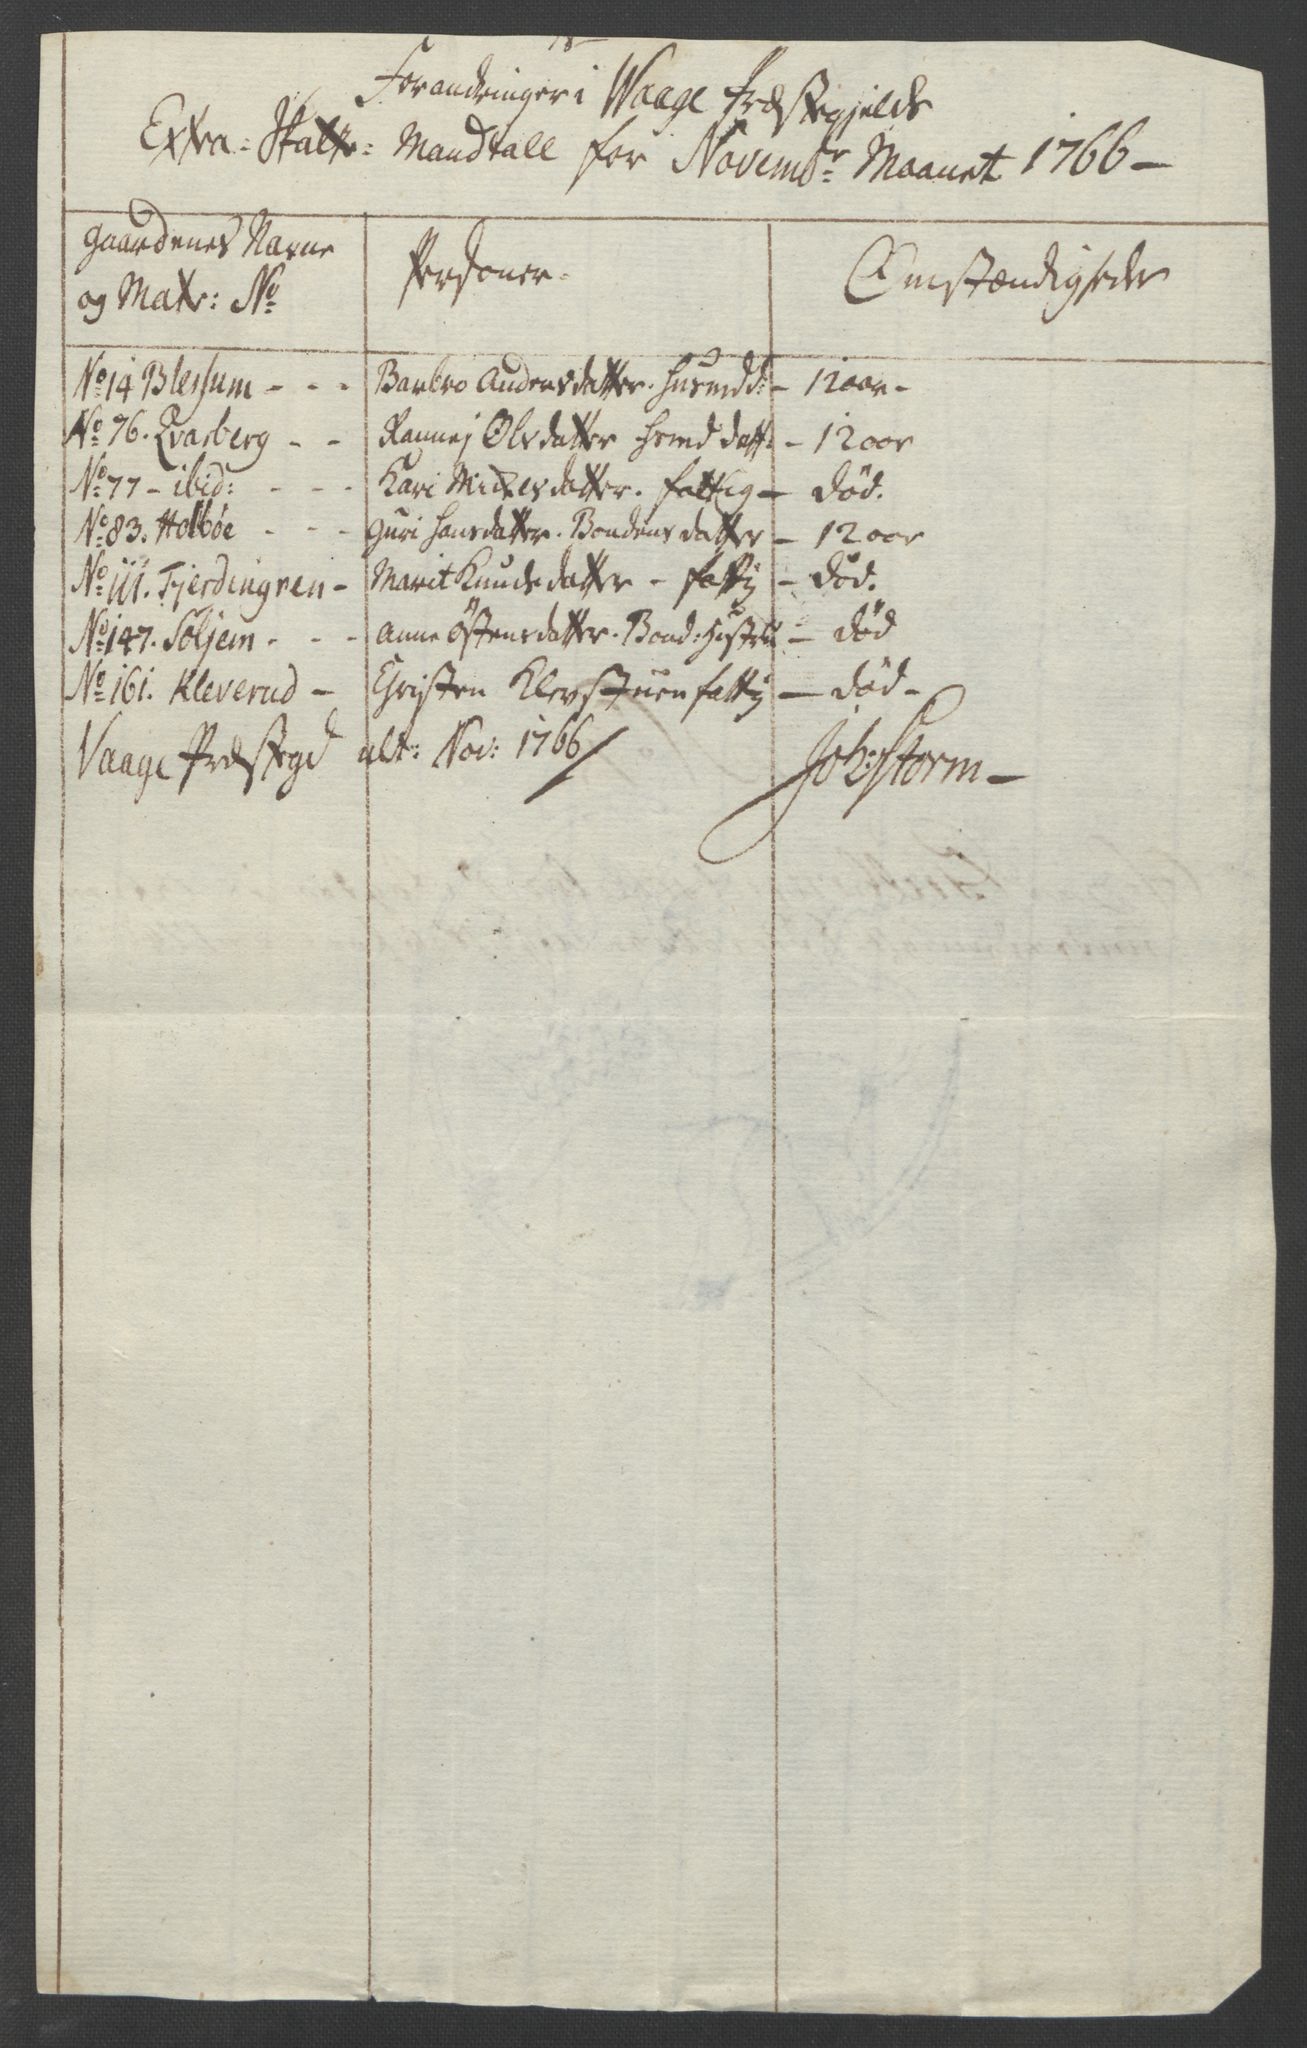 Forandringer i Waage Præstegjelds
Extra-Skatte-Mandtall for Novembr: Maanet 1766 -
gaardenes Navne
og Matr: No
Personer.
Omstændigheder
No 14 Blessum - - - Barbro Andersdatter. husmd d: - 12 aar -
No 76. Qvarberg - - Rannej Olsdatter husmd datt. - 12 aar
No 77 - ibid: - - - Kari Michelsdatter. fattig - död.
No 83. Holböe - - - guri hansdatter. Bondens datter - 12 aar
No 111. Fjerdingren - Marit Knudsdatter - fattig - död.
No 147. Soljem - - - Anne Östensdatter. Bond: hustru - död
No 161. Kleverud - Christen Klevstuen fattig - död -
Vaage Præstegd ult: Nov: 1766 /
Joh: Storm -